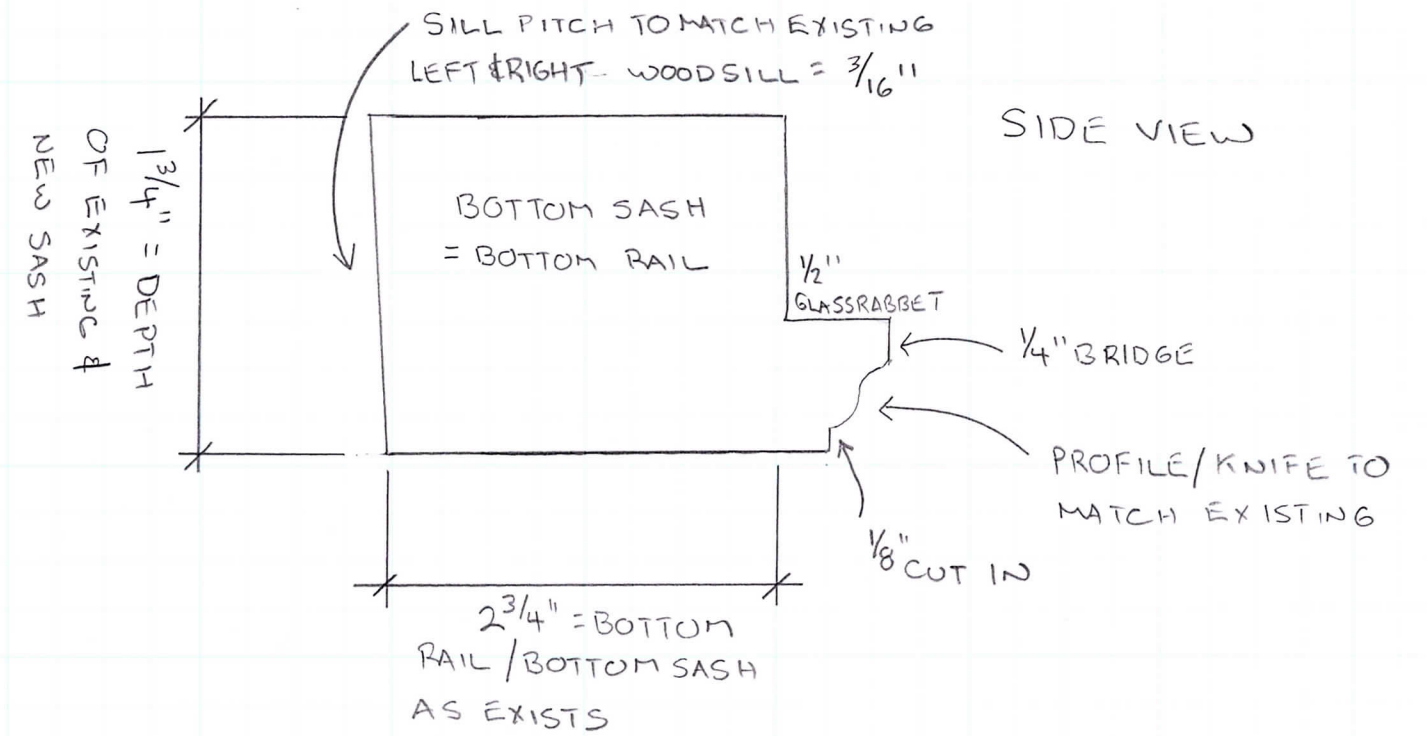 SILL PITCH TO MATCH EXISTING
LEFT & RIGHT WOODSILL = 3/16"
SIDE VIEW
1 3/4" = DEPTH
OF EXISTING &
NEW SASH
BOTTOM SASH
= BOTTOM RAIL
1/2"
GLASSRABBET
1/4" BRIDGE
PROFILE/KNIFE TO
MATCH EXISTING
1/8" CUT IN
2 3/4" = BOTTOM
RAIL/BOTTOM SASH
AS EXISTS